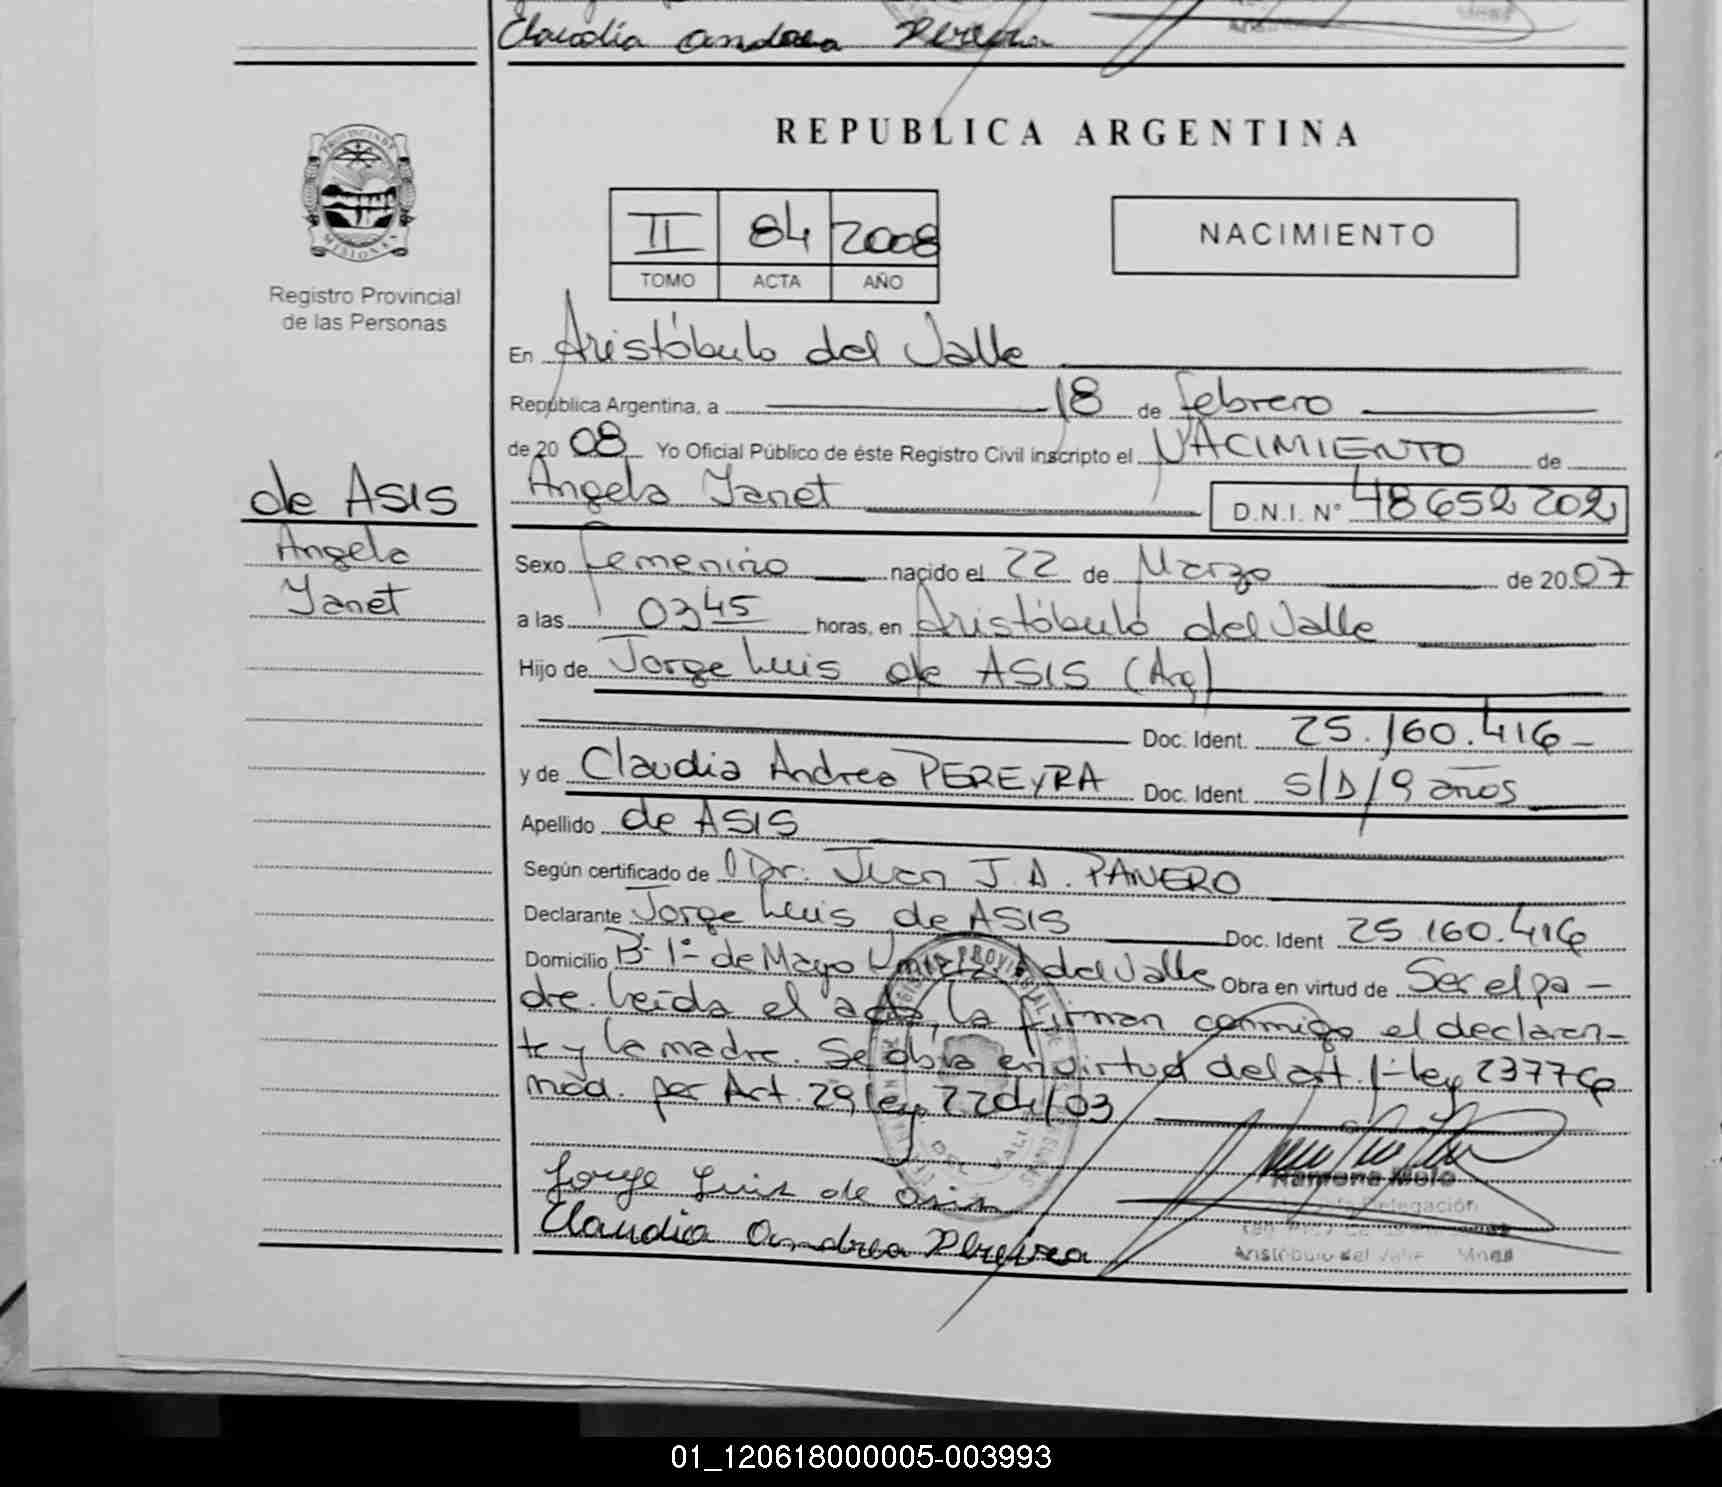 Claudia Andrea Pereyra
REPUBLICA ARGENTINA
II 84 2008
TOMO ACTA AÑO
NACIMIENTO
PROVINCIA DE
MISIONES
Registro Provincial
de las Personas
En Aristóbulo del Valle
República Argentina, a 18 de febrero
de 20 08 Yo Oficial Público de éste Registro Civil inscripto el NACIMIENTO de
Angela Yanet D.N.I. N° 48652202
de ASIS
Angela
Yanet
Sexo femenino nacido el 22 de Marzo de 20 07
a las 03 45 horas, en Aristóbulo del Valle
Hijo de Jorge Luis de ASIS (Arg)
Doc. Ident. 25.160.416
y de Claudia Andrea PEREYRA Doc. Ident. S/D/9 años
Apellido de ASIS
Según certificado de Dr. Juan J.A. PANERO
Declarante Jorge Luis de ASIS Doc. Ident 25.160.416
Domicilio B° 1° de Mayo A del Valle Obra en virtud de Ser el pa-
dre. Leída el acta, la firman conmigo el declaran-
te y la madre. Se obra en virtud del art. 1- ley 23776
mod. por Art. 29 ley
Jorge Luis de asis
Claudia Andrea Pereyra
Ramona Melo
Delegación
Aristóbulo del Valle Mnes
01_120618000005-003993